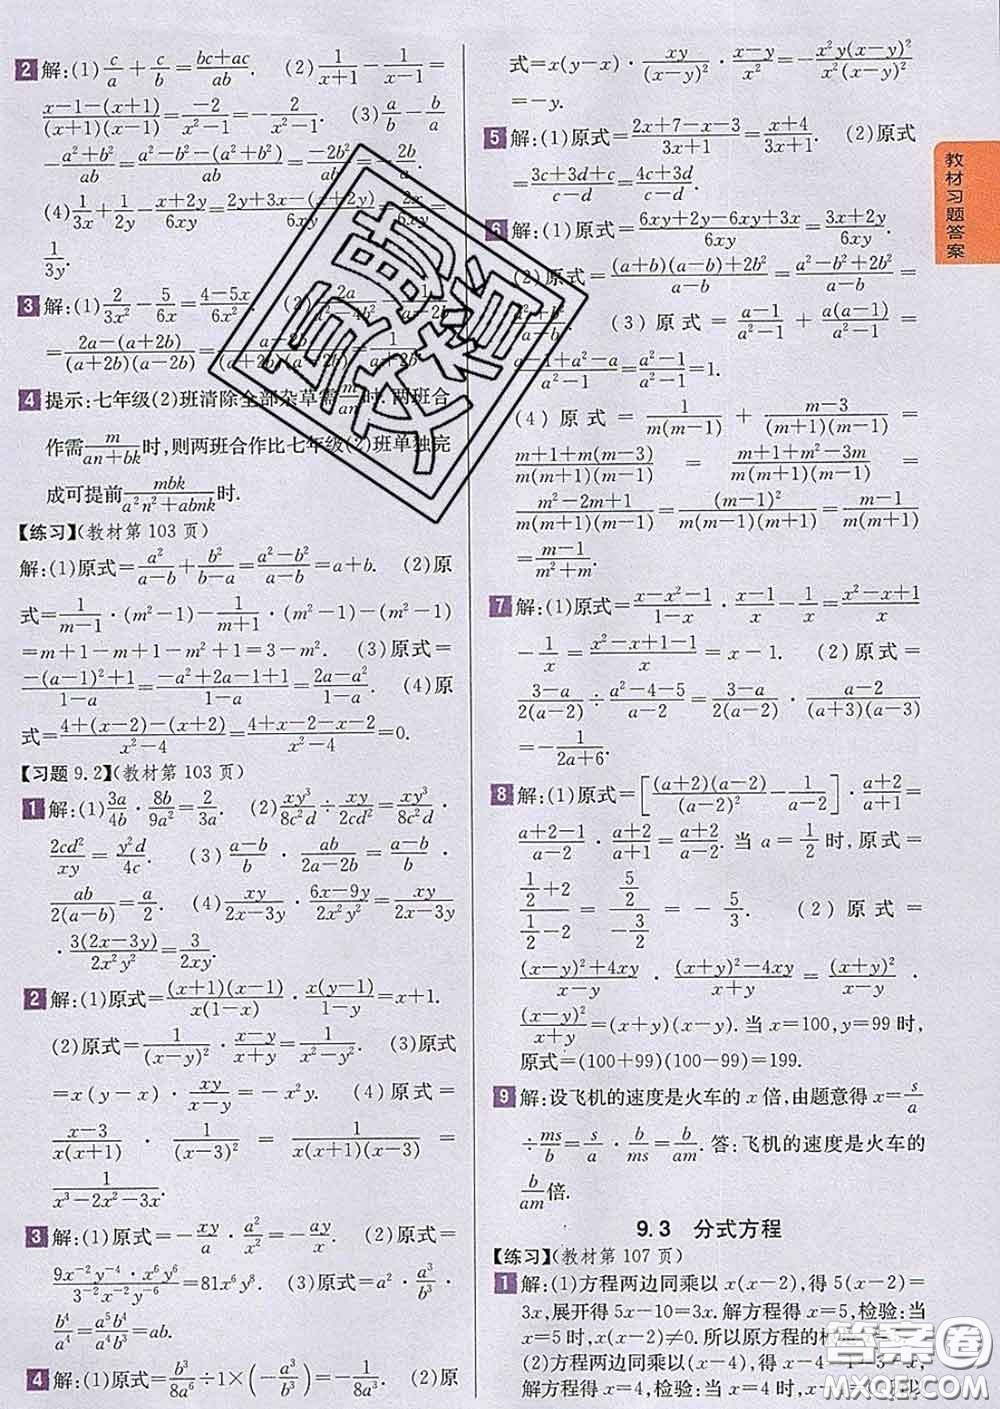 2 解:(1) c/a + c/b = (bc+ac)/ab. (2) 1/(x+1) − 1/(x−1) =
(x−1−(x+1))/((x+1)(x−1)) = −2/(x²−1) = −2/(x²−1). (3) a/b − b/a
−(a²+b²)/ab = (a²−b²−(a²+b²))/ab = −2b²/ab = −2b/a.
(4) 1/3x + 1/2y − (x+2y)/6xy = (2y+3x−(x+2y))/6xy = 2x/6xy =
1/3y.
3 解:(1) 2/3x² − 5/6x = (4−5x)/6x². (2) 2a/(a²−4b²) − 1/(a−2b)
= (2a−(a+2b))/((a+2b)(a−2b)) = (a−2b)/((a+2b)(a−2b)) =
4 提示:七年级(2)班清除全部杂草需 m/an 时.两班合
作需 m/(an+bk) 时,则两班合作比七年级(2)班单独完
成可提前 mbk/(a²n²+abnk) 时.
【练习】(教材第 103 页)
解:(1)原式= a²/(a−b) + b²/(b−a) = (a²−b²)/(a−b) = a+b. (2)原
式= 1/(m−1) · (m²−1) − 1/(m+1) · (m²−1) − (m²−1)
=m+1−m+1−m²+1=3−m². (3)原式=
(−(a−1)²+1)/(1−a) = (−a²+2a−1+1)/(1−a) = (2a−a²)/(1−a). (4)原
式= (4+(x−2)−(x+2))/(x²−4) = (4+x−2−x−2)/(x²−4) = 0.
【习题 9.2】(教材第 103 页)
1 解:(1) 3a/4b · 8b/9a² = 2/3a. (2) xy³/8c²d ÷ xy/2cd² = xy³/8c²d ·
2cd²/xy = y²d/4c. (3) (a−b)/b · ab/(2a−2b) = (a−b)/b ·
ab/(2(a−b)) = a/2. (4) xy/(2x−3y) · (6x−9y)/2x²y² = xy/(2x−3y)
· 3(2x−3y)/2x²y² = 3/2xy.
2 解:(1)原式= (x+1)(x−1)/(x(1−x)) · x(y−1)/(1−y) = x+1.
(2)原式= 1/(x−y)² · (x−y)/(x+y) = 1/(x²−y²). (3)原式
=x(x−y) · xy/(x−y) = −x²y. (4)原式=
(x−3)/(x(x+1)) · 1/(x−3)² = 1/(x(x+1)(x−3)) =
1/(x³−2x²−3x).
3 解:(1)原式= −xy/a · a²/x² = −ay/x. (2)原式=
9x⁻²y⁻⁴·x⁶y⁶/(3⁻²x⁻²y⁻⁶) = 81x⁶y⁸. (3)原式= a² · a³/b³ ·
b⁴/a⁴ = a⁵b⁴/a⁴b³ = ab.
4 解:(1)原式= b³/8a⁶ ÷ 1 × (−a³/b³) = −1/8a³. (2)原
式=x(y−x) · xy/(x−y)² · (x−y)/x² = −x²y(x−y)²/(x²(x−y)²)
=−y.
5 解:(1)原式= (2x+7−x−3)/(3x+1) = (x+4)/(3x+1). (2)原式
= (3c+3d+c)/(c−d) = (4c+3d)/(c−d).
6 解:(1)原式= (6xy+2y−6xy+3x)/6xy = (3x+2y)/6xy.
(2)原式= ((a+b)(a−b)+2b²)/(a−b) = (a²−b²+2b²)/(a−b) =
(a²+b²)/(a−b). (3)原式= (a−1)/(a²−1) + a(a−1)/(a²−1) =
(a−1+a²−a)/(a²−1) = (a²−1)/(a²−1) = 1.
(4)原式= 1/(m(m−3)) + (m−3)/((m+1)(m−3)) =
(m+1+m(m−3))/(m(m+1)(m−3)) = (m+1+m²−3m)/(m(m+1)(m−3)) =
(m²−2m+1)/(m(m+1)(m−1)) = (m−1)²/(m(m+1)(m−1)) =
(m−1)/(m²+m).
7 解:(1)原式= (x−x²−1)/(1−x) · (x−1)/x − 1/x = (x²−x+1)/x
−1/x = (x²−x+1−1)/x = x−1. (2)原式=
(3−a)/(2(a−2)) ÷ (a²−4−5)/(a−2) = (3−a)/(2(a−2)) · (a−2)/((a+3)(a−3))
=−1/(2a+6).
8 解:(1)原式= [(a+2)(a−2)/(a−2)² − 1/(a−2)] · (a+2)/(a+1) =
(a+2−1)/(a−2) · (a+2)/(a+1) = (a+2)/(a−2). 当 a=1/2 时,原式=
(1/2+2)/(1/2−2) = (5/2)/(−3/2) = −5/3. (2)原式=
((x−y)²+4xy)/(x−y) · ((x+y)²−4xy)/(x+y) = (x+y)²/(x−y) ·
(x−y)²/(x+y) = (x+y)(x−y). 当 x=100,y=99 时,
原式=(100+99)(100−99)=199.
9 解:设飞机的速度是火车的 x 倍,由题意得 x= s/a
÷ ms/b = s/a · b/ms = b/am. 答:飞机的速度是火车的
b/am 倍.
9.3 分式方程
【练习】(教材第 107 页)
1 解:(1)方程两边同乘以 x(x−2),得 5(x−2)=
3x,展开得 5x−10=3x.解方程得 x=5,检验:当
x=5 时,x(x−2)≠0.所以原方程的
(2)方程两边同乘以(x−4),得
解方程得 x=4,检验:当 x=4 时,
教材习题答案
答案圈